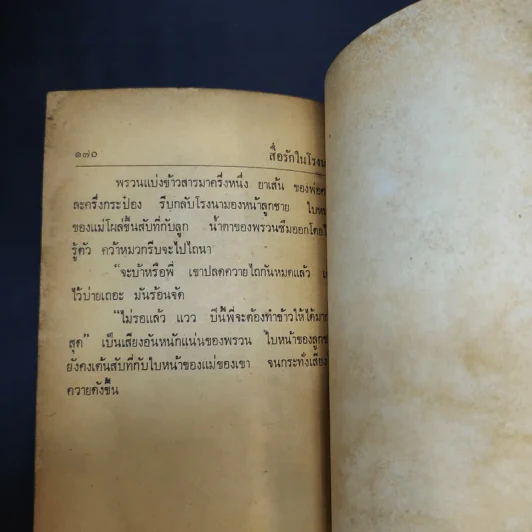 ๑๗๐ สื่อรักในโรงน
พรวนแบ่งข้าวสารมาครึ่งหนึ่ง ยาเส้น ของพ่อค
ละครึ่งกระป๋อง รีบกลับโรงนามองหน้าลูกชาย ใบหน
ของแม่โผล่ขึ้นสับที่กับลูก น้ำตาของพรวนซึมออกโดยไ
รู้ตัว คว้าหมวกรีบจะไปไถนา
“จะบ้าหรือพี่ เขาปลดควายไถกันหมดแล้ว เ
ไว้บ่ายเถอะ มันร้อนจัด
“ไม่รอแล้ว แวว ปีนี้พี่จะต้องทำข้าวให้ได้มาก
สุด” เป็นเสียงอันหนักแน่นของพรวน ใบหน้าของลูกช
ยังคงเต้นสับที่กับใบหน้าของแม่ของเขา จนกระทั่งเสียง
ควายดังขึ้น